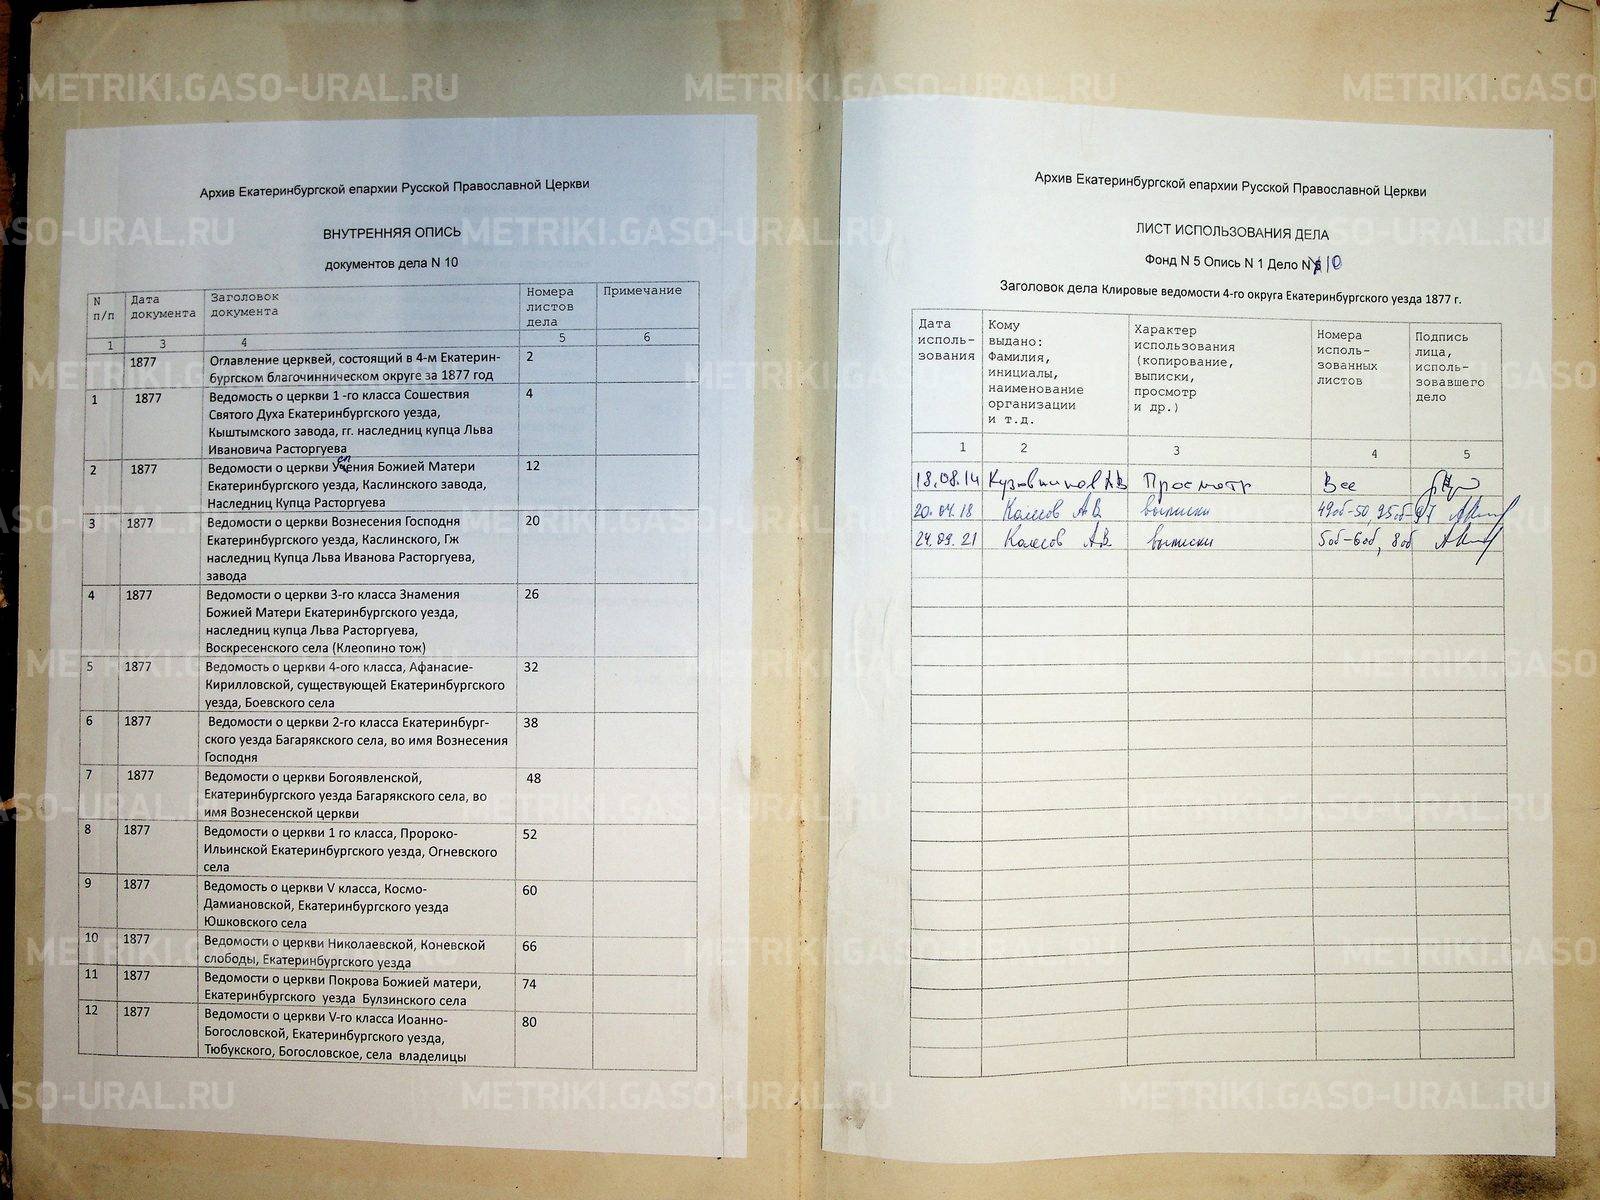 1
METRIKI.GASO-URAL.RU
Архив Екатеринбургской епархии Русской Православной Церкви
ВНУТРЕННЯЯ ОПИСЬ
документов дела N 10
N п/п
Дата документа
Заголовок документа
Номера листов дела
Примечание
1 3 4 5 6
1877 Оглавление церквей, состоящий в 4-м Екатерин-
бургском благочинническом округе за 1877 год 2
1 1877 Ведомость о церкви 1 -го класса Сошествия 4
Святого Духа Екатеринбургского уезда,
Кыштымского завода, гг. наследниц купца Льва
Ивановича Расторгуева
2 1877 Ведомости о церкви Успения Божией Матери 12
Екатеринбургского уезда, Каслинского завода,
Наследниц Купца Расторгуева
3 1877 Ведомости о церкви Вознесения Господня 20
Екатеринбургского уезда, Каслинского, Гж
наследниц Купца Льва Иванова Расторгуева,
завода
4 1877 Ведомости о церкви 3-го класса Знамения 26
Божией Матери Екатеринбургского уезда,
наследниц купца Льва Расторгуева,
Воскресенского села (Клеопино тож)
5 1877 Ведомость о церкви 4-ого класса, Афанасие- 32
Кирилловской, существующей Екатеринбургского
уезда, Боевского села
6 1877 Ведомости о церкви 2-го класса Екатеринбург- 38
ского уезда Багарякского села, во имя Вознесения
Господня
7 1877 Ведомости о церкви Богоявленской, 48
Екатеринбургского уезда Багарякского села, во
имя Вознесенской церкви
8 1877 Ведомости о церкви 1 го класса, Пророко- 52
Ильинской Екатеринбургского уезда, Огневского
села
9 1877 Ведомость о церкви V класса, Космо- 60
Дамиановской, Екатеринбургского уезда
Юшковского села
10 1877 Ведомости о церкви Николаевской, Коневской 66
слободы, Екатеринбургского уезда
11 1877 Ведомости о церкви Покрова Божией матери, 74
Екатеринбургского уезда Булзинского села
12 1877 Ведомости о церкви V-го класса Иоанно- 80
Богословской, Екатеринбургского уезда,
Тюбукского, Богословское, села владелицы
Архив Екатеринбургской епархии Русской Православной Церкви
ЛИСТ ИСПОЛЬЗОВАНИЯ ДЕЛА
Фонд N 5 Опись N 1 Дело N 10
Заголовок дела Клировые ведомости 4-го округа Екатеринбургского уезда 1877 г.
Дата
исполь-
зования
Кому
выдано:
Фамилия,
инициалы,
наименование
организации
и т.д.
Характер
использования
(копирование,
выписки,
просмотр
и др.)
Номера
исполь-
зованных
листов
Подпись
лица,
исполь-
зовавшего
дело
1 2 3 4 5
18.08.14 Кузовников АВ Просмотр Все
20.04.18 Колесов А.В. выписки 49об-50, 95об-97
24.09.21 Колесов А.В. выписки 5об-6об, 8об